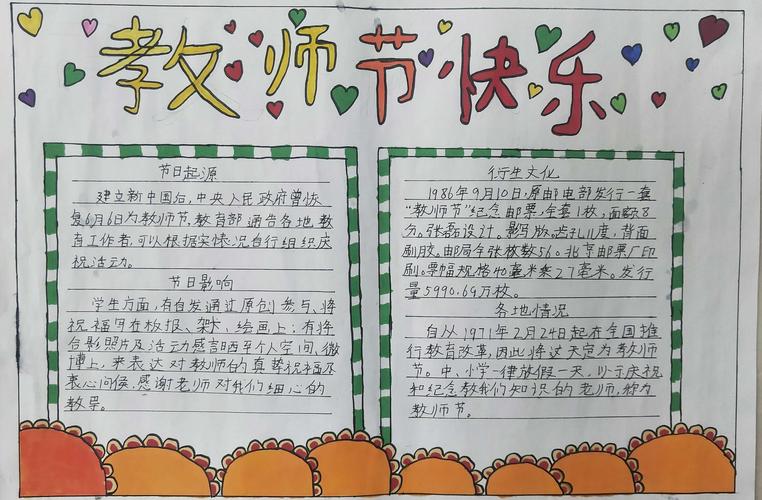 教师节快乐
节日起源
建立新中国后,中央人民政府曾恢
复6月6日为教师节,教育部通告各地教
育工作者,可以根据实际情况自行组织庆
祝活动。
节日影响
学生方面,有自发通过原创参与、将
祝福写在板报、架、绘画上;有将
合影照片及活动感言晒至个人空间、微
博上,来表达对教师的真挚祝福及
衷心问候,感谢老师对我们细心的
教导。
衍生文化
1986年9月10日,原邮电部发行一套
“教师节”纪念邮票,全套1枚,面额8
分。张磊设计。影写版。齿孔11度,背面
刷胶。邮局全张枚数56。北京邮票厂印
刷。票幅规格40毫米乘27毫米。发行
量5990.69万枚。
各地情况
自从1971年2月24日起在全国推
行教育改革,因此将这天定为教师
节。中、小学一律放假一天,以示庆祝
和纪念教我们知识的老师,称为
教师节。